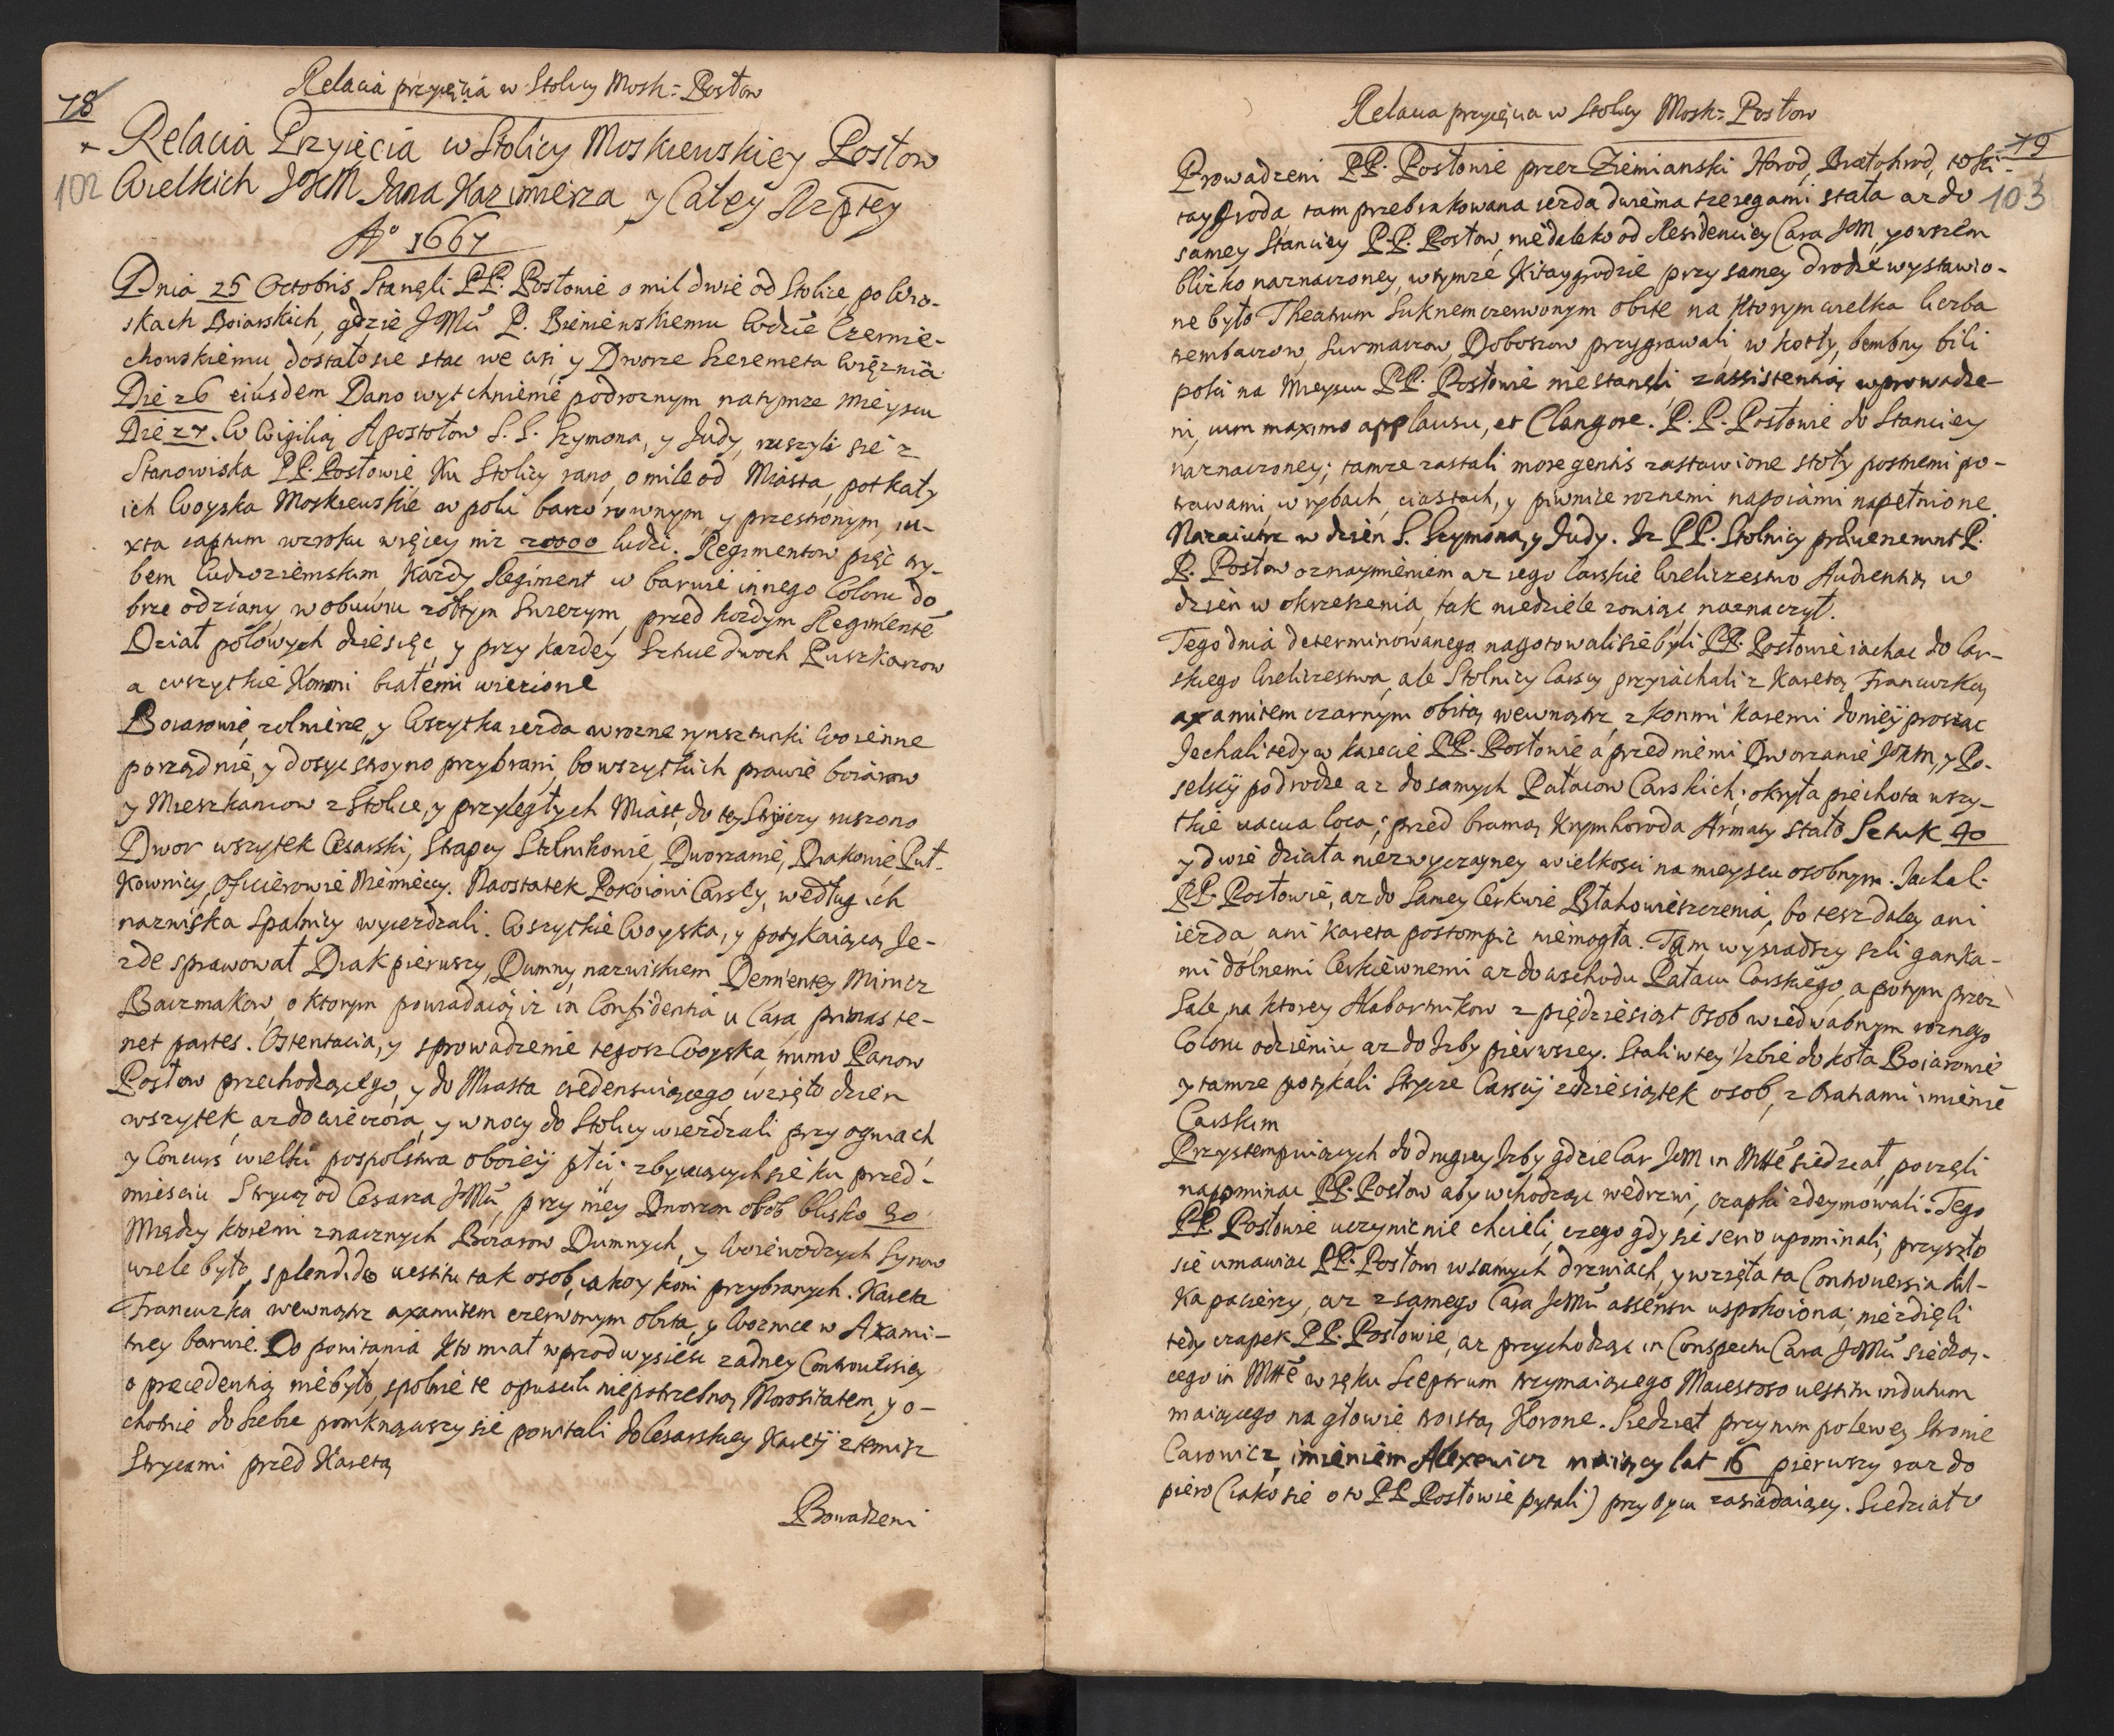 Relacia przyięcia w Stolicy Mosk: Posłow
78
102
Relacia Przyięcia w Stolicy Moskiewskiey Posłow
Wielkich JKM Jana Kazimierza y Całey Rzptey
Aº 1667
Dnia 25 Octobris Stanęli PP: Posłowie o mil dwie od Stolice, po Wio-
skach Boiarskich, gdzie JMu P. Bieniewskiemu
chowskiemu, dostało sie stac we wsi y Dworze Szeremeta Więznia
Die 26 eiusdem Dano wytchnienie podroznym na tymze mieyscu
Die 27. W Wigilią Apostołow S. S. Szymona, y Judy, ruszyli się z
Stanowiska PP. Posłowie Ku Stolicy rano, o mile od Miasta, potkały
ich Woyska Moskiewskie w polu barzo rownym, y przestronym, iu-
xta captum wzroku więcey niz 20000 ludzi. Regimentow pięc try-
bem Cudzoziemskim, Kazdy Regiment w barwie innego Coloru do
brze odziany, w obuwiu zołtym Surezym, przed kozdym Regimente
Dział polowych dziesięc, y przy kazdey Sztuce dwoch Puszkarzow
a wszytkie Konmi białemi wiezione
Boiarowie, zolnierze, y Wszytka iezda w rozne rynsztunki Woienne
porządnie, y dosyc stroyno przybrani, bo wszytkich prawie boiarow
y Mieszkancow z Stolice, y przyległych Miast, do tey ruszono
Dwor wszytek Cesarski, Strapcy Stolnikowie, Dworzanie, Diakowie, Puł-
kownicy, Officierowie Niemieccy. Naostatek Pokoiowi Carscy, według ich
nazwiska Spalnicy wyiezdzali. Wszytkie Woyska, y potykaiącą Je-
zde sprawował Diak pierwszy, Dumny, nazwiskiem Dementey Minicz
Baczmakow, o ktorym powiadaią iz in Confidentia u Cara primas te-
net partes. Ostentacia, y sprowadzenie tegosz Woyska, mimo Panow
Posłow przechodzącego, y do Miasta wzięło dzien
wszytek, az do wieczora, y w nocy do Stolicy wiezdzali przy ogniach
y Concurs wielki pospolstwa oboiey płci; ku przed-
miesciu Strycą od Cesarza JMu, przy niey Dworzan osob blisko 30
Między ktoremi znacznych Boiarow Dumnych, y Woiewodzych Synow
wiele było, splendido vestitu tak osob, iako y koni przybranych. Kareta
Francuzka wewnątrz axamitem czerwonym obita, y Woznice w Axami-
tney barwie. Do powitania Kto miał wprzod wysiesc zadney Controwersiey
o precedentią niebyło, spolnie te opuscili niepotrzebną Morositatem, y o-
chotnie do Siebie pomknąwszy sie powitali do Cesarskiey Karety z temisz
Strycami przed Karetą
Prowadzeni
Relacia przyięcia w Stolicy Mosk: Posłow
79
103
Prowadzeni PP. Posłowie przez Ziemianski Horod, Białohrod, to Ki-
taygroda, tam przebrakowana iezda dwiema szeregami stała az do
samey Stanciey P.P. Posłow, niedaleko od Residenciey Cara JM, y owszem
blizko naznaczoney, w tymze Kitaygrodzie przy samey drodze wystawio-
ne było Theatrum Suknem czerwonym obite na Ktorym wielka liczba
trembaczow, Surmaczow, Doboszow przygrawali, w kotły, bembny bili
poki na Mieyscu PP. Posłowie nie stanęli, z assistentią wprowadze-
ni, cum maximo applausu, et Clangore. P.P. Posłowie do Stanciey
naznaczoney; tamze zastali more gentis zastawione stoły postnemi po-
trawami, w rybach, ciastach, y piwnice roznemi napoiami napełnione.
Nazaiutrz w dzien S. Szymona, y Judy. Iz PP. Stolnicy praeuenerunt P.
P. Posłow oznaymieniem az iego Carskie Wieliczestwo Audientią w
dzien wokrzeszenia, tak niedziele zowiąc, naznaczył.
Tego dnia determinowanego nagotowali sie byli PP. Posłowie iachac do Car-
skiego Wieliczestwa, ale Stolnicy Carscy przyiachali z Karetą Francuzką
axamitem czarnym obitą wewnątrz, z konmi karemi do niey prosząc
Jechali tedy w karecie PP. Posłowie, a przed niemi Dworzanie JKM, y Po-
selscy po drodze az do samych Pałacow Carskich; okryła piechota wszy-
tkie vacua loca; przed bramą Krymhoroda Armaty stało Sztuk 40
y dwie działa niezwyczayney wielkosci na mieyscu osobnym. Jachali
PP. Posłowie, az do Samey Cerkwie Błahowieszczenia, bo tesz daley ani
iezda, ani kareta postompic niemogła. Tam wysiadszy szli ganka-
mi dolnemi Cerkiewnemi az do wschodu Pałacu Carskiego, a potym przez
Sale, na ktorey Alabartnikow z pięcdziesiąt Osob w iedwabnym roznego
Coloru odzieniu, az do Izby pierwszey. Stali w tey Izbie dokoła Boiarowie
y tamze potykali Strycze Carscy z dziesiątek osob, z imienie
Carskim
Przystempuiących do drugiey Izby gdzie Car JM in Mtte siedział, poczęli
napominac PP. Posłow aby wchodząc we drzwi, czapki zdeymowali. Tego
PP. Posłowie uczynic nie chcieli, czego gdy sie serio upominali, przyszło
sie umawiac PP. Posłom w samych drzwiach, y wzięła ta Controuersia kil-
ka pacierzy, az z samego Cara JeMu assensu uspokoiona; niezdięli
tedy czapek PP. Posłowie, az przychodząc in Conspectu Cara JeMu siedzą-
cego in Mtte w ręku Sceptrum trzymaiącego Maiestoso vestitu indutum
maiącego na głowie troistą Korone. Siedział przy nim po lewey Stronie
Carowicz, imieniem Alexewicz maiący lat 16 pierwszy raz do
piero (iako sie o to PP. Posłowie pytali) przy oycu zasiadaiący. Siedziało